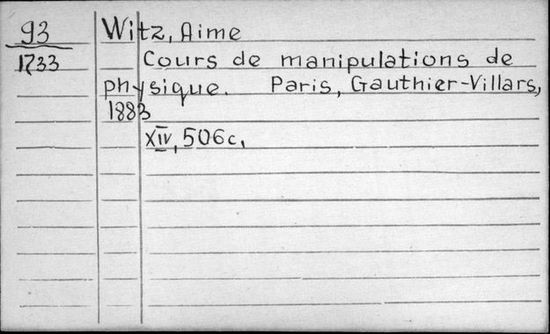 93 Witz, Aime
1733 Cours de manipulations de
physique. Paris, Gauthier-Villars,
1883
XIV, 506c.